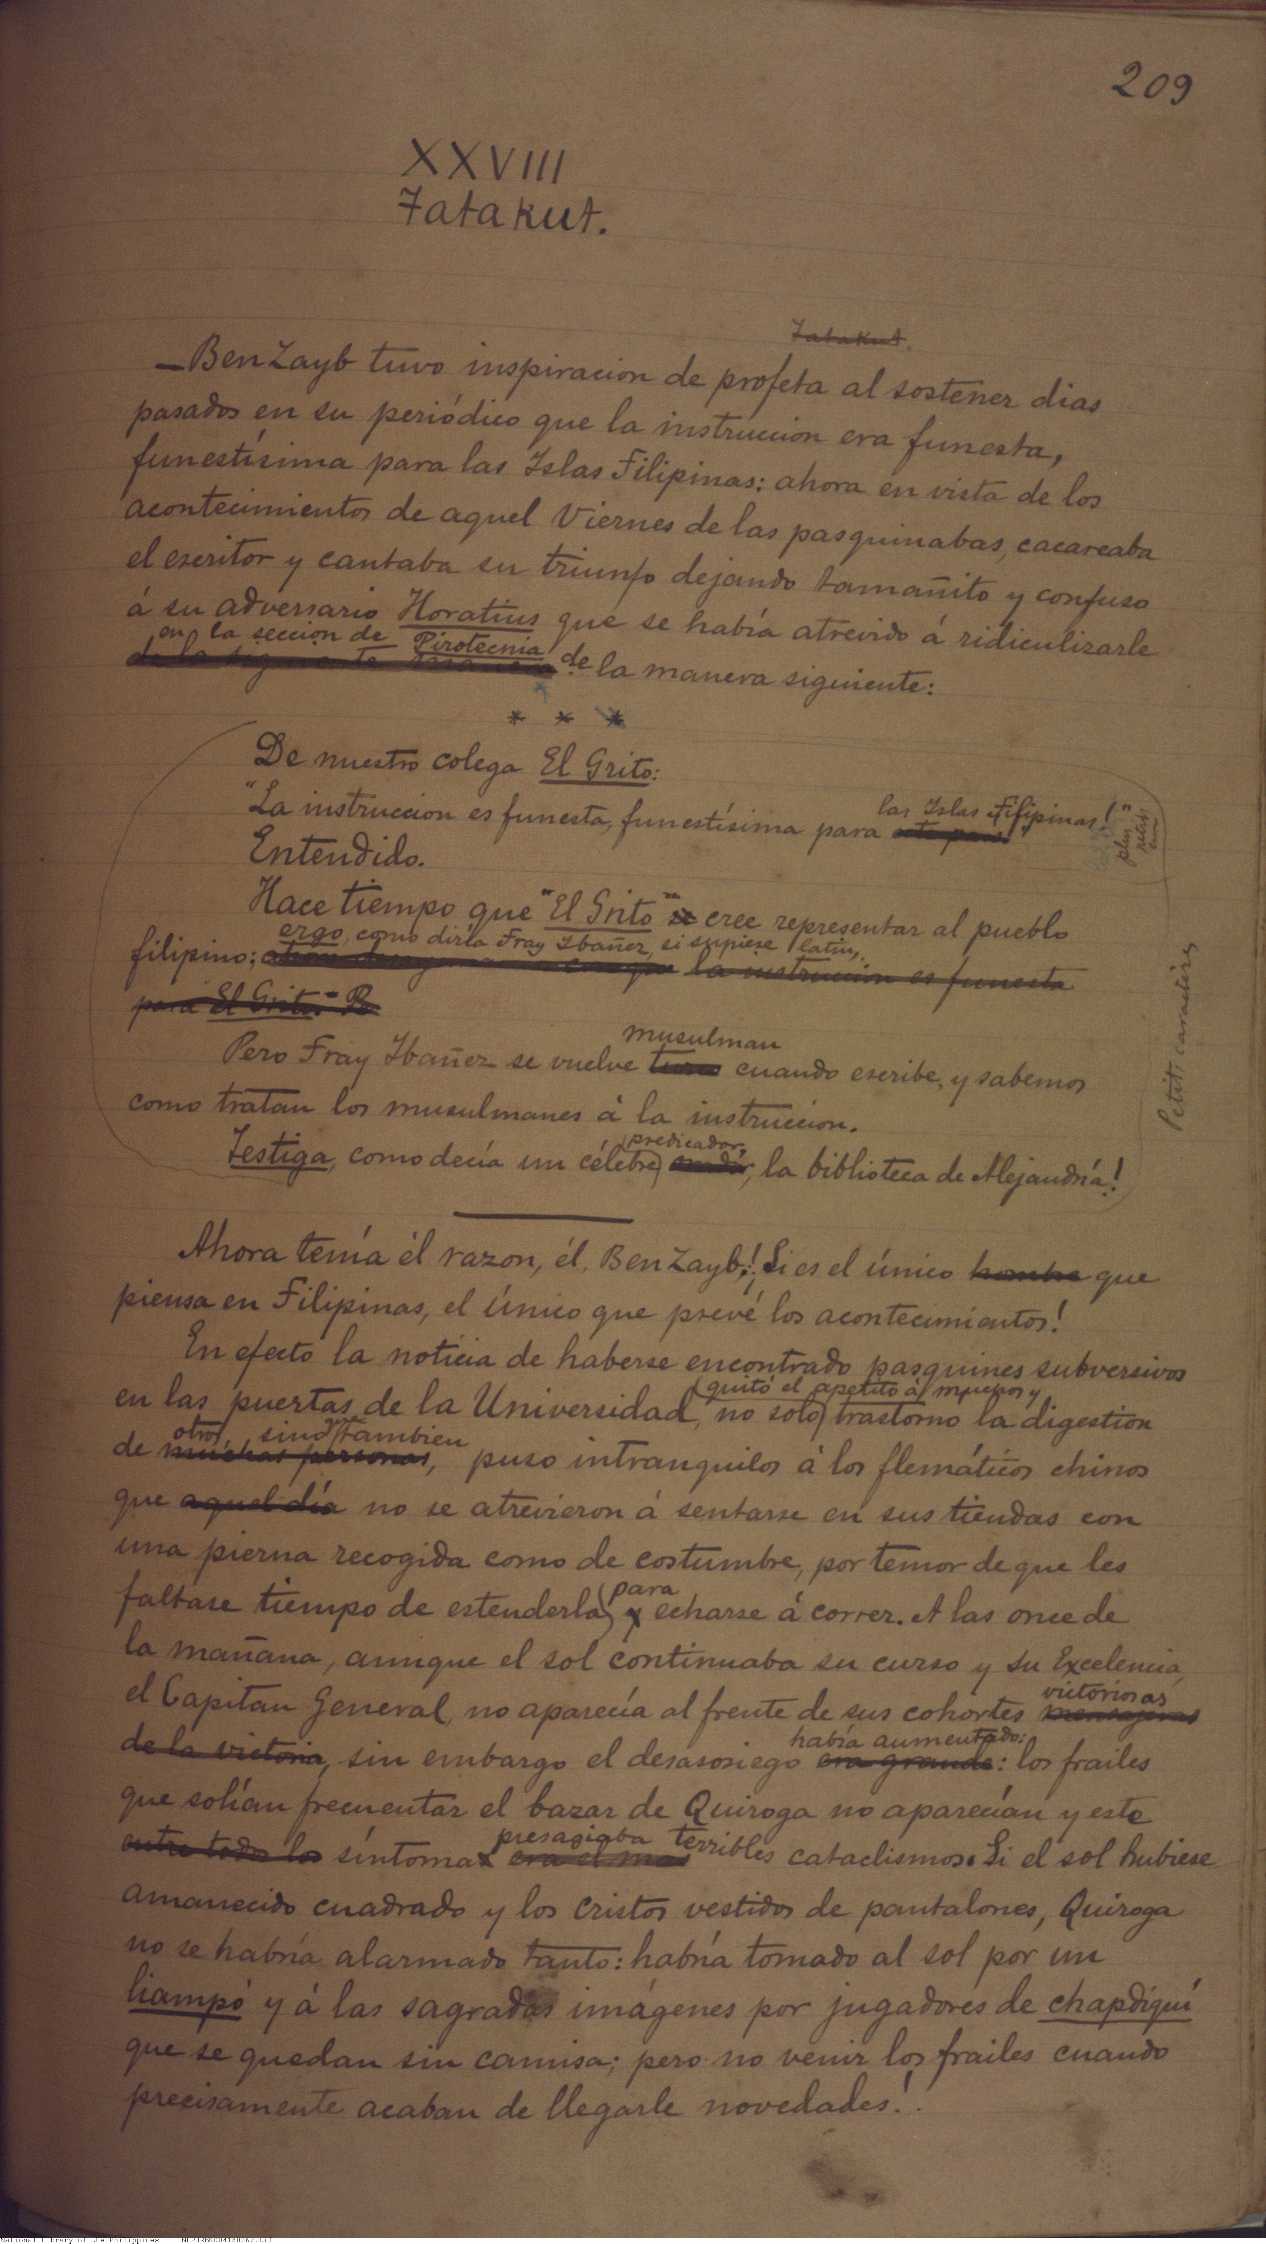 209
XXVIII
Tatakut.
Tatakut.
—Ben Zayb tuvo inspiracion de profeta al sostener dias
pasados en su periódico que la instruccion era funesta,
funestísima para las Islas Filipinas: ahora en vista de los
acontecimientos de aquel Viernes de las pasquinabas, cacareaba
el escritor y cantaba su triunfo dejando tamañito y confuso
á su adversario Horatius que se había atrevido á ridiculizarle
en la seccion de Pirotecnia
de la manera siguiente:
* * *
De nuestro colega El Grito:
las Islas Filipinas!"
"La instruccion es funesta, funestísima para este pais."
plus petits
Entendido.
Hace tiempo que "El Grito" se cree representar al pueblo
ergo, como diría Fray Ibañez, si supiese latin,
filipino: la instruccion es funesta
para El Grito.
musulman
Pero Fray Ibañez se vuelve turco cuando escribe, y sabemos
como tratan los musulmanes á la instruccion.
predicador,
Testiga, como decía un célebre orador, la biblioteca de Alejandría!
Petits caractères
Ahora tenía él razon, él, Ben Zayb! Si es el único hombre que
piensa en Filipinas, el único que prevé los acontecimientos!
En efecto la noticia de haberse encontrado pasquines subversivos
quitó el apetito á muchos y
en las puertas de la Universidad, no solo trastorno la digestion
otros, sino que tambien
de muchas personas, puso intranquilos á los flemáticos chinos
que aquel día no se atrevieron á sentarse en sus tiendas con
una pierna recogida como de costumbre, por temor de que les
para
faltase tiempo de estenderla y echarse á correr. A las once de
la mañana, aunque el sol continuaba su curso y su Excelencia,
victoriosas
el Capitan General, no aparecía al frente de sus cohortes mensajeras
había aumentado:
de la victoria, sin embargo el desasosiego era grande: los frailes
que solían frecuentar el bazar de Quiroga no aparecían y este
presagiaba terribles
entre todos los síntoma era el mas cataclismos. Si el sol hubiese
amanecido cuadrado y los cristos vestidos de pantalones, Quiroga
no se habría alarmado tanto: habría tomado al sol por un
liampó y á las sagradas imágenes por jugadores de chapdiquí
que se quedan sin camisa; pero no venir los frailes cuando
precisamente acaban de llegarle novedades!